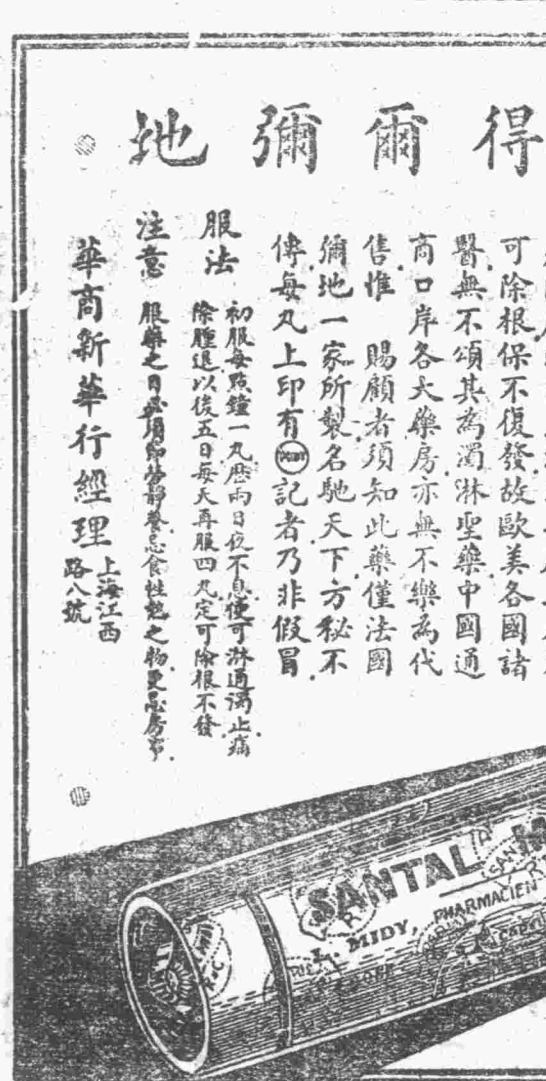 得爾彌地
可除根保不復發故歐美各國諸
醫無不頌其為濁淋聖藥中國通
商口岸各大藥房亦無不樂為代
售惟 賜顧者須知此藥僅法國
彌地一家所製名馳天下方秘不
傳每丸上印有MIDY記者乃非假冒
服法
初服每點鐘一丸歷兩日夜不息便可淋通濁止痛
除腫退以後五日每天再服四丸定可除根不發
注意
服藥之日必須節勞靜養忌食性熱之物更忌房事
華商新華行經理
上海江西
路八號
SANTAL
MIDY, PHARMACIEN